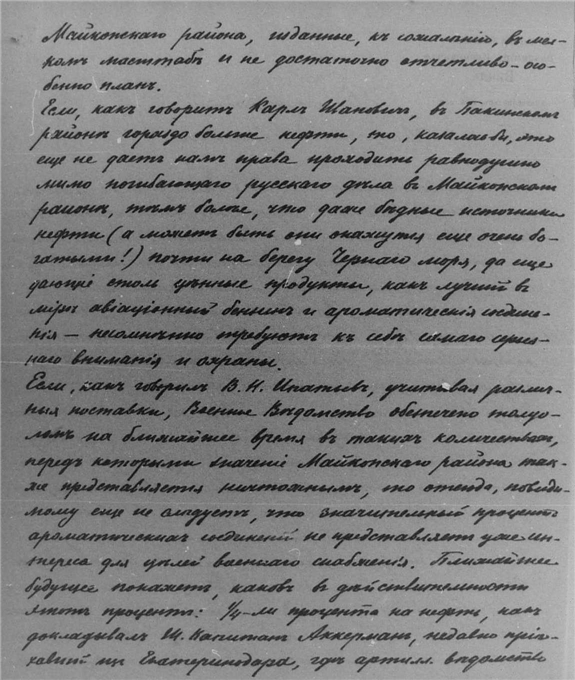 Майкопскаго района, изданные, къ сожалѣнію, въ мел-
комъ масштабѣ и не достаточно отчетливо-осо-
бенно планъ.
Если, какъ говоритъ Карлъ Ивановичъ, въ Бакинскомъ
районѣ гораздо больше нефти, то, казалось бы, это
еще не даетъ намъ права проходить равнодушно
мимо погибающаго русскаго дѣла въ Майкопскомъ
районѣ, тѣмъ болѣе, что даже бѣдные источники
нефти (а можетъ быть они окажутся еще очень бо-
гатыми!) почти на берегу Чернаго моря, да еще
дающіе столь цѣнные продукты, какъ лучшій въ
мірѣ авіаціонный бензинъ и ароматическія соедине-
нія — несомнѣнно требуютъ къ себѣ самаго серьез-
наго вниманія и охраны.
Если, какъ говорилъ В. Н. Ипатьевъ, учитывая различ-
ныя поставки, Военное Вѣдомство обезпечено толуо-
ломъ на ближайшее время въ такихъ количествахъ,
передъ которыми значеніе Майкопскаго района так-
же представляется ничтожнымъ, то отсюда, повиди-
мому еще не слѣдуетъ, что значительный процентъ
ароматическихъ соединеній не представляетъ уже ин-
тереса для цѣлей военнаго снабженія. Ближайшее
будущее покажетъ, каковъ въ дѣйствительности
этотъ процентъ: ¼-ли процента на нефть, какъ
докладывалъ Ш. Капитанъ Аккерманъ, недавно пріѣ-
хавшій изъ Екатеринодара, гдѣ артилл. вѣдомство